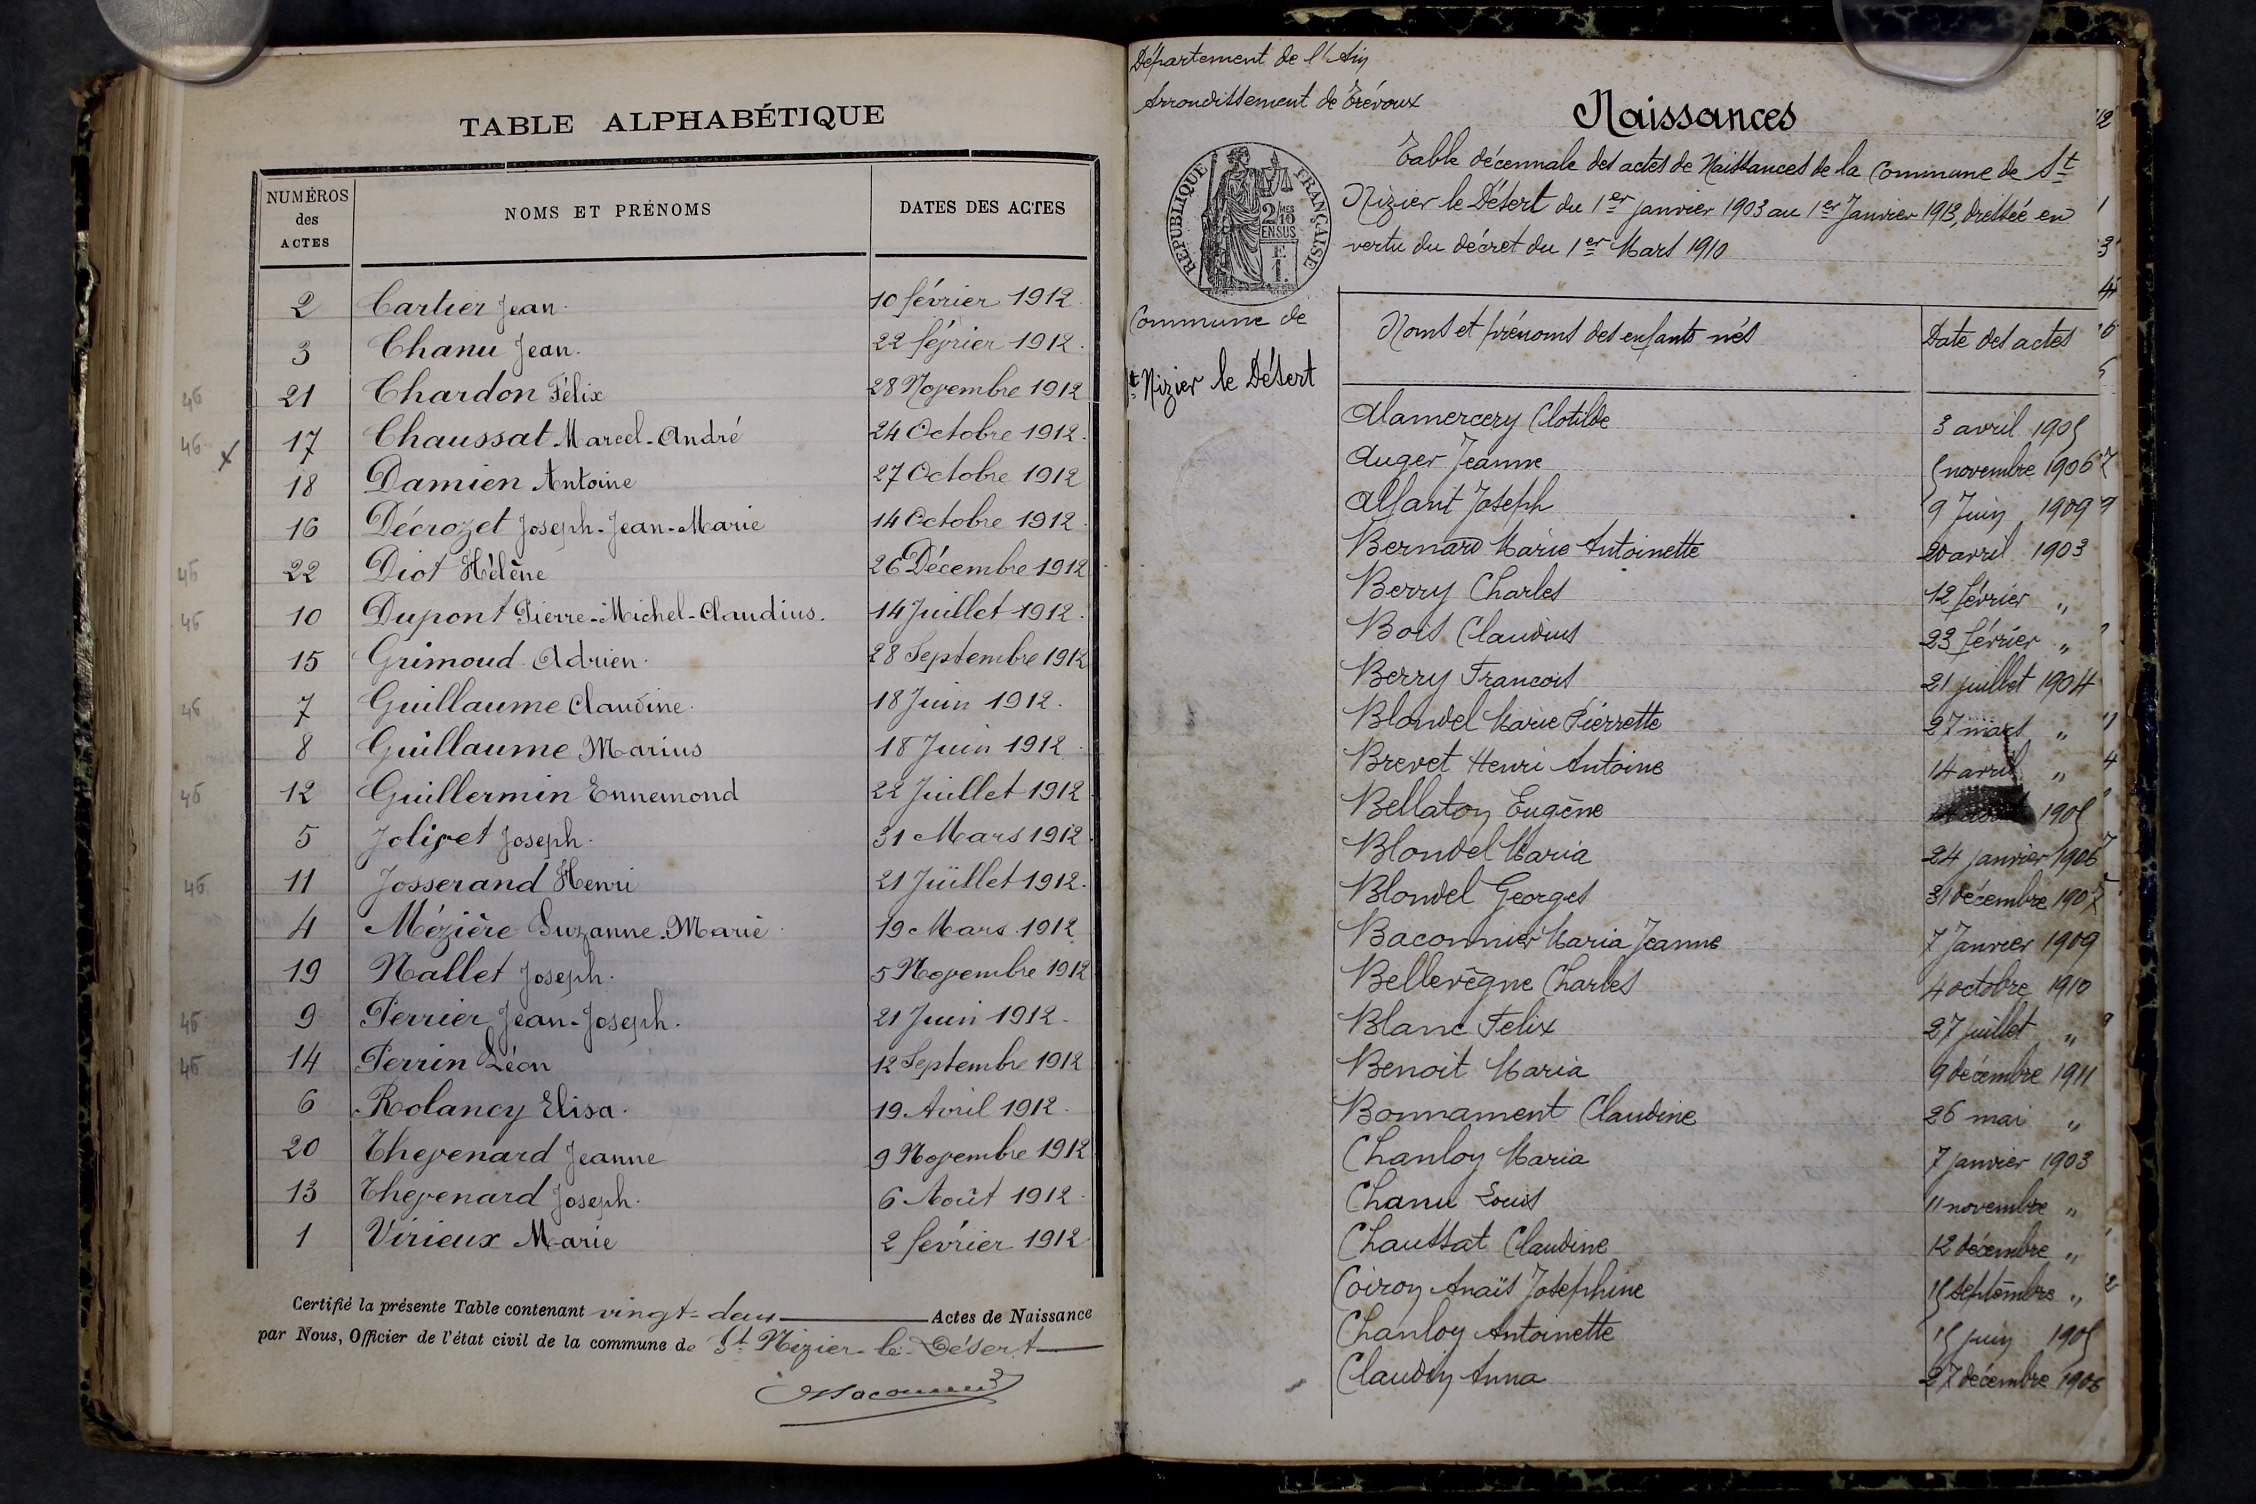 TABLE ALPHABÉTIQUE
NUMÉROS des ACTES NOMS ET PRÉNOMS DATES DES ACTES
2 Cartier Jean. 10 février 1912.
3 Chanu Jean. 22 février 1912.
46 21 Chardon Félix 28 Novembre 1912
46 x 17 Chaussat Marcel-André 24 Octobre 1912.
18 Damien Antoine 27 Octobre 1912
16 Décrozet Joseph-Jean-Marie 14 Octobre 1912.
46 22 Diot Hélène 26 Décembre 1912
46 10 Dupont Pierre-Michel-Claudius. 14 Juillet 1912.
15 Grimoud Adrien. 28 Septembre 1912
46 7 Guillaume Claudine. 18 Juin 1912.
8 Guillaume Marius 18 Juin 1912.
46 12 Guillermin Ennemond 22 Juillet 1912
5 Jolivet Joseph. 31 Mars 1912
46 11 Josserand Henri 21 Juillet 1912.
4 Mézière Suzanne-Marie 19 Mars 1912
19 Nallet Joseph. 5 Novembre 1912
46 9 Perrier Jean-Joseph. 21 Juin 1912.
46 14 Perrin Léon 12 Septembre 1912
6 Rolancy Elisa. 19 Avril 1912.
20 Thevenard Jeanne 9 Novembre 1912
13 Thevenard Joseph. 6 Août 1912.
1 Virieux Marie 2 février 1912
Certifié la présente Table contenant vingt-deux Actes de Naissance
par Nous, Officier de l'état civil de la commune de St Nizier-le-Désert
Département de l'Ain
Arrondissement de Trévoux
Naissances
RÉPUBLIQUE FRANÇAISE
2/10 MES EN SUS
Table décennale des actes de Naissances de la Commune de St
Nizier le Désert du 1er janvier 1903 au 1er Janvier 1913, dressée en
vertu du décret du 1er Mars 1910
Commune de
St Nizier le Désert
Noms et prénoms des enfants nés Date des actes
Alamercery Clotilde 3 avril 1905
Auger Jeanne 5 novembre 1906
Allant Joseph 9 Juin 1909
Bernard Marie Antoinette 20 avril 1903
Berry Charles 12 février "
Bois Claudius 23 février "
Berry Francois 21 juillet 1904
Blondel Marie Pierrette 27 mars "
Brevet Henri Antoine 14 avril "
Bellaton Eugène 1905
Blondel Maria 24 janvier 1906
Blondel Georges 31 décembre 1907
Baconnier Maria Jeanne 7 Janvier 1909
Bellevègne Charles 4 octobre 1910
Blanc Felix 27 juillet "
Benoit Maria 9 décembre 1911
Bonnament Claudine 26 mai "
Chanloy Maria 7 janvier 1903
Chanu Louis 11 novembre "
Chaussat Claudine 12 décembre "
Coiron Anaïs Josephine 15 septembre "
Chanloy Antoinette 15 juin 1905
Claudin Anna 27 décembre 1906